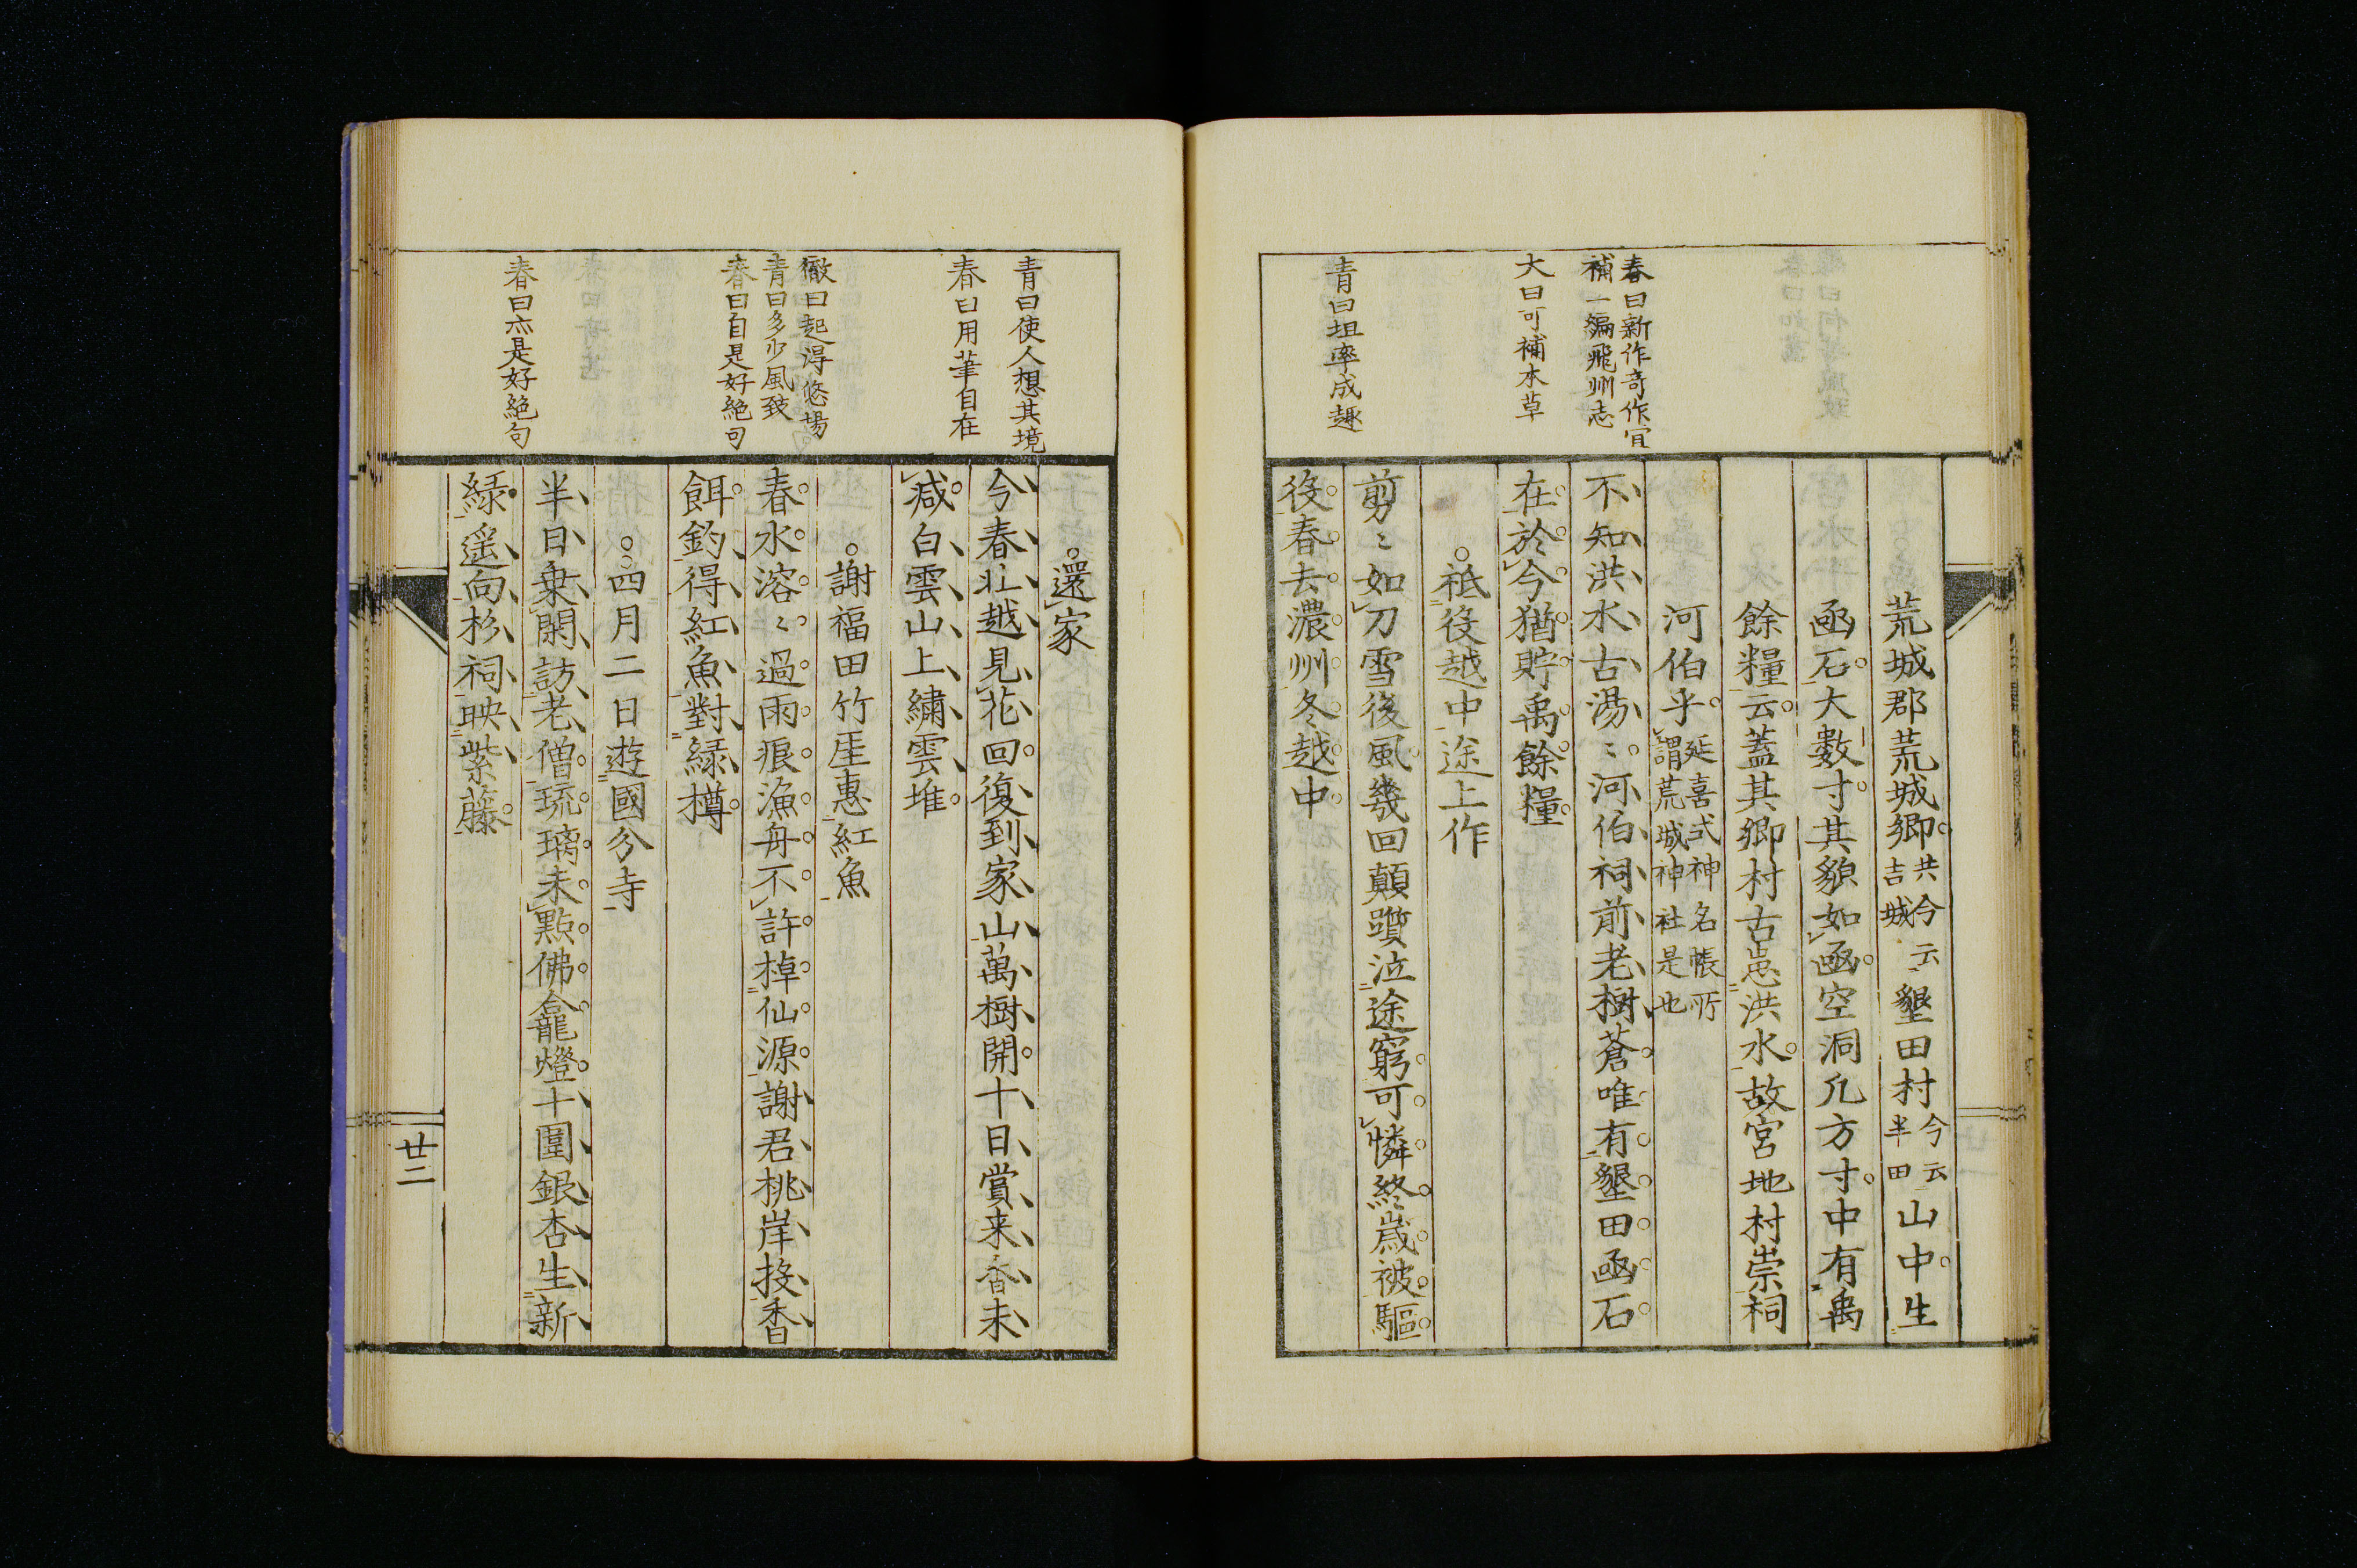 春曰新作奇作宜
補一編飛州志
大曰可補本草
青曰坦率成趣
荒城郡荒城鄉共今云吉城墾田村今云半田山中生
凾石大數寸其貌如凾空洞凡方寸中有禹
餘糧云蓋其鄉村古患洪水故宮地村崇祠
河伯乎延喜式神名帳所謂荒城神社是也
不知洪水古湯〻河伯祠前老樹蒼唯有墾田凾石
在於今猶貯禹餘糧
祗役越中途上作
剪〻如刀雪後風幾回顛躓泣途窮可憐終歲被驅
役春去濃州冬越中
青曰使人想其境
春曰用筆自在
徹曰起得悠揚
青曰多少風致
春曰自是好絶句
春曰亦是好絶句
還家
今春壮越見花回復到家山萬樹開十日賞来香未
减白雲山上繡雲堆
謝福田竹厓惠紅魚
春水溶〻過雨痕漁舟不許棹仙源謝君桃岸投香
餌釣得紅魚對綠樽
四月二日遊國分寺
半日乗閑訪老僧琉璃未點佛龕燈十圍銀杏生新
綠遥向杉祠映紫藤
廿二